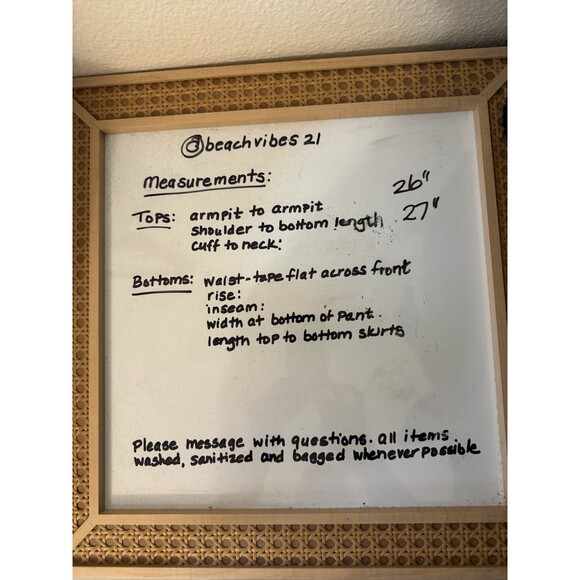 @beachvibes 21
Measurements:
Tops: armpit to armpit 26"
shoulder to bottom length 27"
cuff to neck:
Bottoms: waist-tape flat across front
rise:
inseam:
width at bottom of pant.
length top to bottom skirts
Please message with questions. all items
washed, sanitized and bagged whenever possible